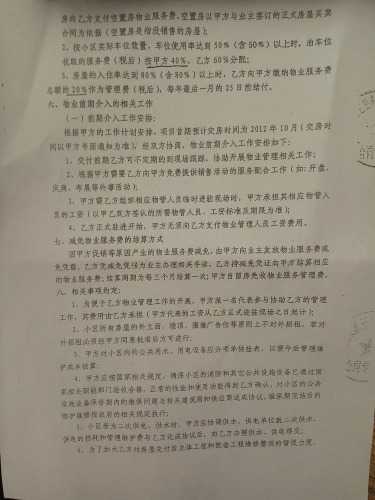 房向乙方支付空置房物业服务费。空置房以甲方与业主签订的正式房屋买卖
合同为依据（空置房是指没销售的房屋）；
2、按小区实际车位数量，车位使用率达到 50％（含 50％）以上时，泊车位
收取的服务费（税后）按甲方 40%、乙方 60%分配；
3、房屋的入住率达到 90％（含 90％）以上时，乙方向甲方缴纳物业服务费
总额的 20%作为管理费（税后），每年最后一月的 25 日前结付。
六、物业前期介入的相关工作
（一）前期介入工作安排：
根据甲方的工作计划安排，项目首期预计交房时间为 2012 年 10 月（交房时
间以甲方书面通知为准），经双方协商，物业前期介入工作安排如下：
1、交付前期乙方可不定期的到现场跟踪，协助开展物业管理相关工作；
2、根据甲方需要乙方向甲方免费提供销售活动的服务配合工作（如：开盘、
庆典、布展等外事活动）。
3、甲方需乙方组织相应物管人员临时进驻现场时，甲方承担其相应物管人
员的工资（以甲乙双方签认的所需物管人员、工资标准及期限为准）；
4、乙方正式进驻开始，甲方无须向乙方支付物业管理人员工资费用。
七、减免物业服务费的结算方式
因甲方促销等原因产生的物业服务费减免，由甲方向业主发放物业服务费减
免凭证，乙方凭减免凭证为业主办理相关手续，乙方持减免凭证向甲方结算相应
的物业服务费；结算周期为每三个月结算一次；甲方自留房免收物业服务管理费。
八、相关事项约定：
1、为便于乙方物业管理工作的开展，甲方派一名代表参与协助乙方的管理
工作，其费用由乙方承担（甲方代表的工资从乙方正式进驻现场之日起计）；
2、小区所有房屋的外立面、墙顶、围墙广告位等原则上不对外招租，若对
外招租必须经甲方同意核准后方可进行；
3、甲方对小区内的公共用水、用电设备应分项单独挂表，以便今后管理维
护成本核算。
4、甲方应按国家相关规定，确保小区的消防和其它公共设施设备已通过国
家相关职能部门验收合格，正常的性能和使用功能得到乙方确认，对小区的公共
设施设备保修期内的维保问题与相关建筑商和供应商达成协议，确保期完结后的
维护维修按政府的相关规定执行；
5、小区若为二次供电、供水时，甲方应协调供水、供电单位就二次供水、
供电的损耗和管理维护费与乙方达成协议后，由乙方办理供水、供电移交；
6、为了加大乙方对房屋交付后主体工程和配套工程维修整改的督促力度，